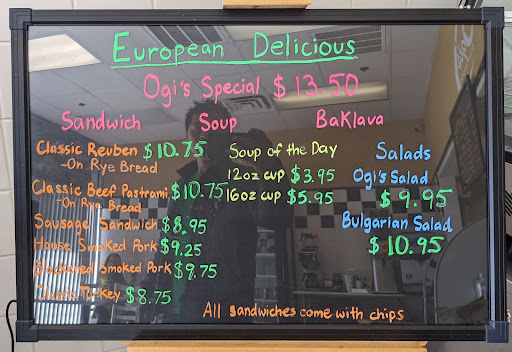 European Delicious
Ogi's Special $13.50
Sandwich Soup Baklava
Classic Reuben $10.75
-On Rye Bread
Classic Beef Pastrami $10.75
-On Rye Bread
Sausage Sandwich $8.95
House Smoked Pork $9.25
Blackened Smoked Pork $9.75
Turkey $8.75
Soup of the Day
12oz cup $3.95
16oz cup $5.95
Salads
Ogi's Salad
$9.95
Bulgarian Salad
$10.95
All sandwiches come with chips